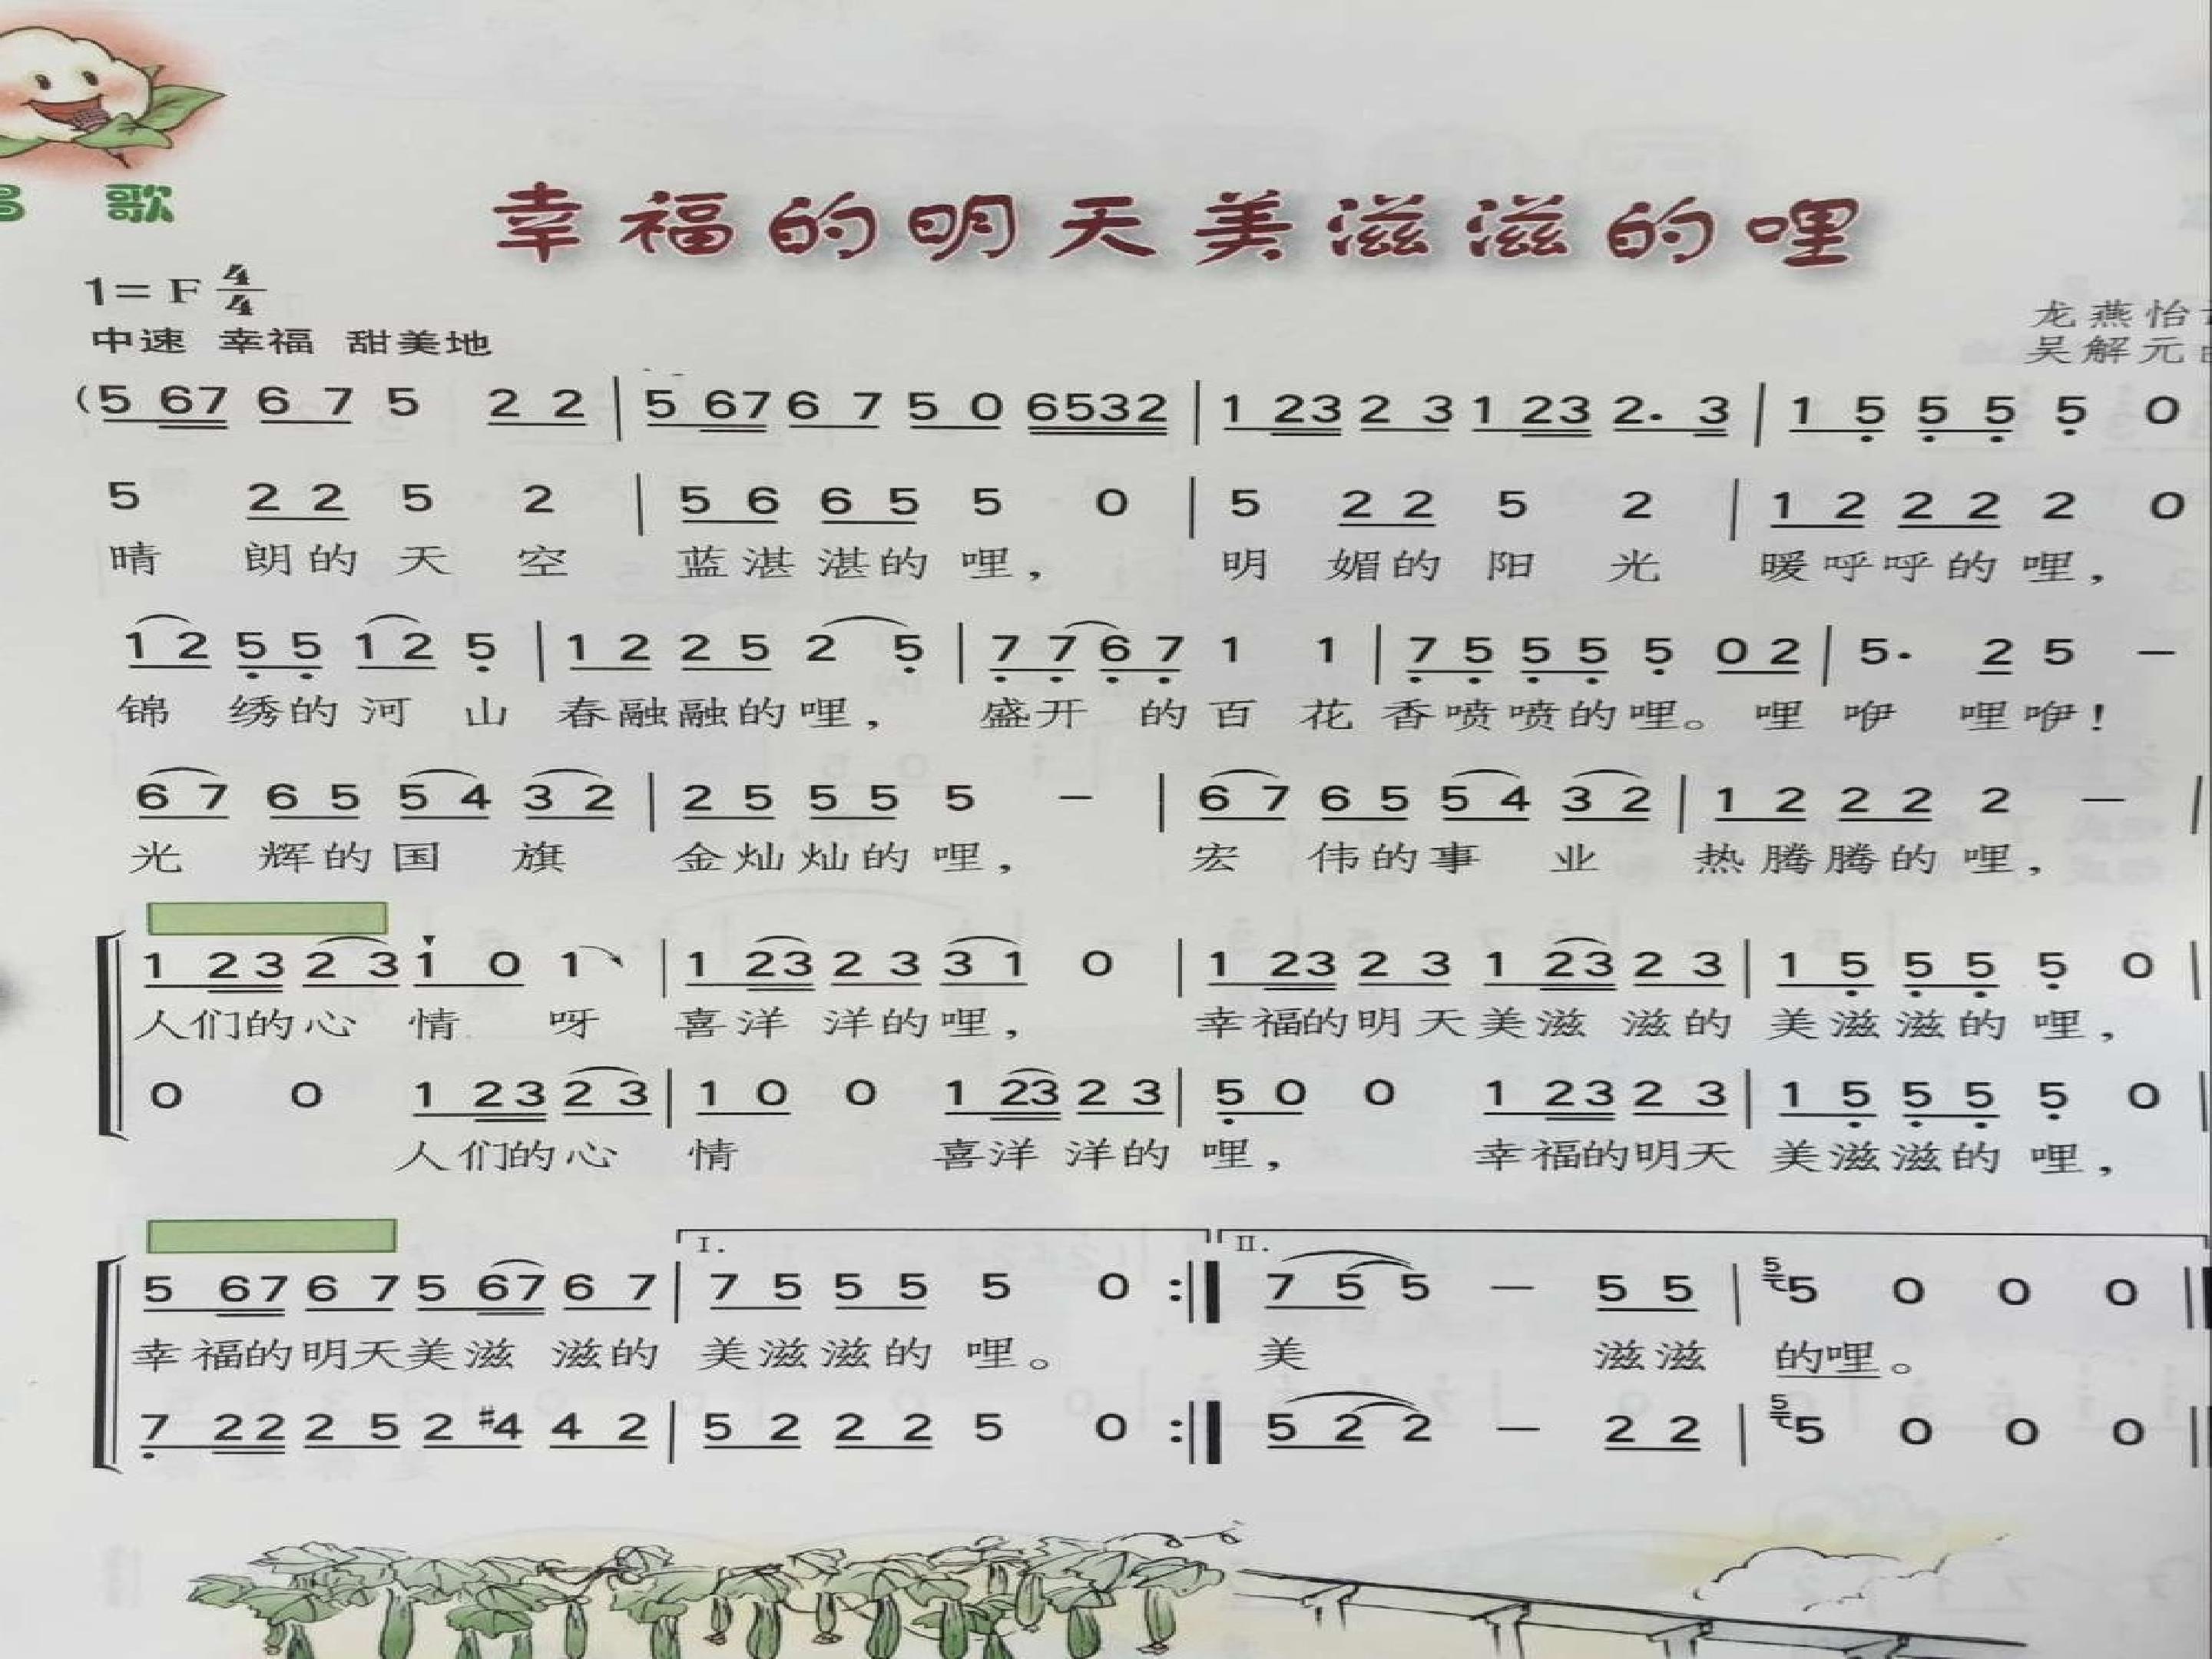 歌
幸福的明天美滋滋的哩
1=F 4/4
中速 幸福 甜美地
龙燕怡
吴解元
(5 67 6 7 5 2 2 | 5 67 6 7 5 0 6532 | 1 23 2 3 1 23 2. 3 | 1 5̣ 5̣ 5̣ 5̣ 0
5 2 2 5 2 | 5 6 6 5 5 0 | 5 2 2 5 2 | 1 2 2 2 2 0
晴 朗的 天 空 蓝湛湛的哩, 明 媚的 阳 光 暖呼呼的哩,
1 2 5̣ 5̣ 1 2 5̣ | 1 2 2 5 2 5̣ | 7̣ 7̣ 6̣ 7̣ 1 1 | 7̣ 5̣ 5̣ 5̣ 5̣ 0 2 | 5. 2 5 —
锦 绣的河 山 春融融的哩, 盛开 的百 花 香喷喷的哩。哩 咿 哩咿!
6 7 6 5 5 4 3 2 | 2 5 5 5 5 — | 6 7 6 5 5 4 3 2 | 1 2 2 2 2 — |
光 辉的国 旗 金灿灿的哩, 宏 伟的事 业 热腾腾的哩,
1 23 2 3 1 0 1 | 1 23 2 3 3 1 0 | 1 23 2 3 1 23 2 3 | 1 5̣ 5̣ 5̣ 5̣ 0 |
人们的心 情 呀 喜洋 洋的哩, 幸福的明天美滋 滋的 美滋滋的哩,
0 0 1 23 2 3 | 1 0 0 1 23 2 3 | 5̣ 0 0 1 23 2 3 | 1 5̣ 5̣ 5̣ 5̣ 0 |
人们的心 情 喜洋 洋的 哩, 幸福的明天 美滋滋的哩,
I. II.
5 67 6 7 5 67 6 7 | 7 5 5 5 5 0 :‖ 7 5 5 — 5 5 | 5 5 0 0 0 ‖
幸福的明天美滋 滋的 美滋滋的 哩。 美 滋滋 的哩。
7̣ 22 2 5 2 #4 4 2 | 5 2 2 2 5 0 :‖ 5 2 2 — 2 2 | 5 5 0 0 0 ‖